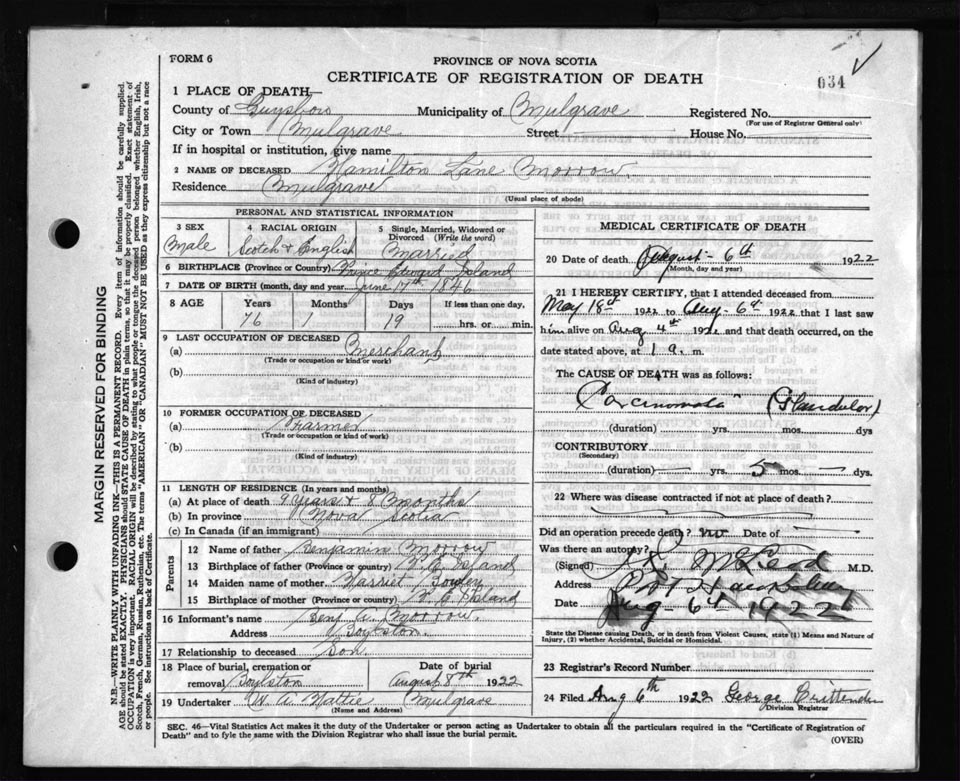 FORM 6
PROVINCE OF NOVA SCOTIA
CERTIFICATE OF REGISTRATION OF DEATH
034
1 PLACE OF DEATH—
County of Guysboro Municipality of Mulgrave Registered No.
(For use of Registrar General only)
City or Town Mulgrave Street House No.
If in hospital or institution, give name
2 NAME OF DECEASED Hamilton Lane Morrow.
Residence Mulgrave
(Usual place of abode)
MARGIN RESERVED FOR BINDING
N.B.—WRITE PLAINLY WITH UNFADING INK—THIS IS A PERMANENT RECORD. Every item of information should be carefully supplied.
AGE should be stated EXACTLY. PHYSICIANS should STATE CAUSE OF DEATH in plain terms, so that it may be properly classified. Exact statement of
OCCUPATION is very important. RACIAL ORIGIN will be described by stating to what people or tongue the deceased person belonged whether English, Irish,
Scotch, French, German, Russian, Ruthenian, etc. The terms "AMERICAN" OR "CANADIAN" MUST NOT BE USED as they express citizenship but not a race
or people. See instructions on back of Certificate.
PERSONAL AND STATISTICAL INFORMATION
3 SEX
Male
4 RACIAL ORIGIN
Scotch & English
5 Single, Married, Widowed or
Divorced (Write the word)
Married
6 BIRTHPLACE (Province or Country) Prince Edward Island
7 DATE OF BIRTH (month, day and year) June 17th 1846
8 AGE Years Months Days If less than one day,
76 1 19 hrs. or min.
9 LAST OCCUPATION OF DECEASED
(a) Merchant
(Trade or occupation or kind of work)
(b)
(Kind of industry)
10 FORMER OCCUPATION OF DECEASED
(a) Farmer
(Trade or occupation or kind of work)
(b)
(Kind of industry)
11 LENGTH OF RESIDENCE (In years and months)
(a) At place of death 9 Years & 8 Months
(b) In province Nova Scotia
(c) In Canada (if an immigrant)
Parents
12 Name of father Benjamin Morrow
13 Birthplace of father (Province or country) P. E. Island
14 Maiden name of mother Harriet
15 Birthplace of mother (Province or country) P. E. Island
16 Informant's name Benj A. Morrow.
Address Boylston.
17 Relationship to deceased Son.
18 Place of burial, cremation or Date of burial
removal Boylston August 8th 1922
19 Undertaker W. A. Hattie Mulgrave
(Name and Address)
MEDICAL CERTIFICATE OF DEATH
20 Date of death August - 6th 1922
(Month, day and year)
21 I HEREBY CERTIFY, that I attended deceased from
May 18th 1922 to Aug - 6th 1922 that I last saw
him alive on Aug 4th 1922 and that death occurred, on the
date stated above, at 1 a. m.
The CAUSE OF DEATH was as follows:
Carcinomata (Glandular)
(duration) yrs. mos. dys
CONTRIBUTORY
(Secondary)
(duration) — yrs. 5 mos. — dys.
22 Where was disease contracted if not at place of death?
Did an operation precede death? no Date of —
Was there an autopsy?
(Signed) McLeod M.D.
Address Port Hawkesbury
Date Aug - 6th 1922
State the Disease causing Death, or in death from Violent Causes, state (1) Means and Nature of
Injury, (2) whether Accidental, Suicidal or Homicidal.
23 Registrar's Record Number
24 Filed Aug 6th 1922 George Crittenden
Division Registrar
SEC. 46—Vital Statistics Act makes it the duty of the Undertaker or person acting as Undertaker to obtain all the particulars required in the "Certificate of Registration of
Death" and to fyle the same with the Division Registrar who shall issue the burial permit.
(OVER)